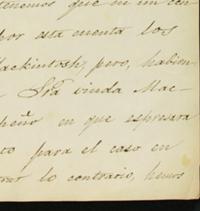 tenemos que en un con
por esta cuenta los
Mackintosh, pero, habien
Sra viuda Mac-
peño en que espresara
to para el caso en
lo contrario, hemos